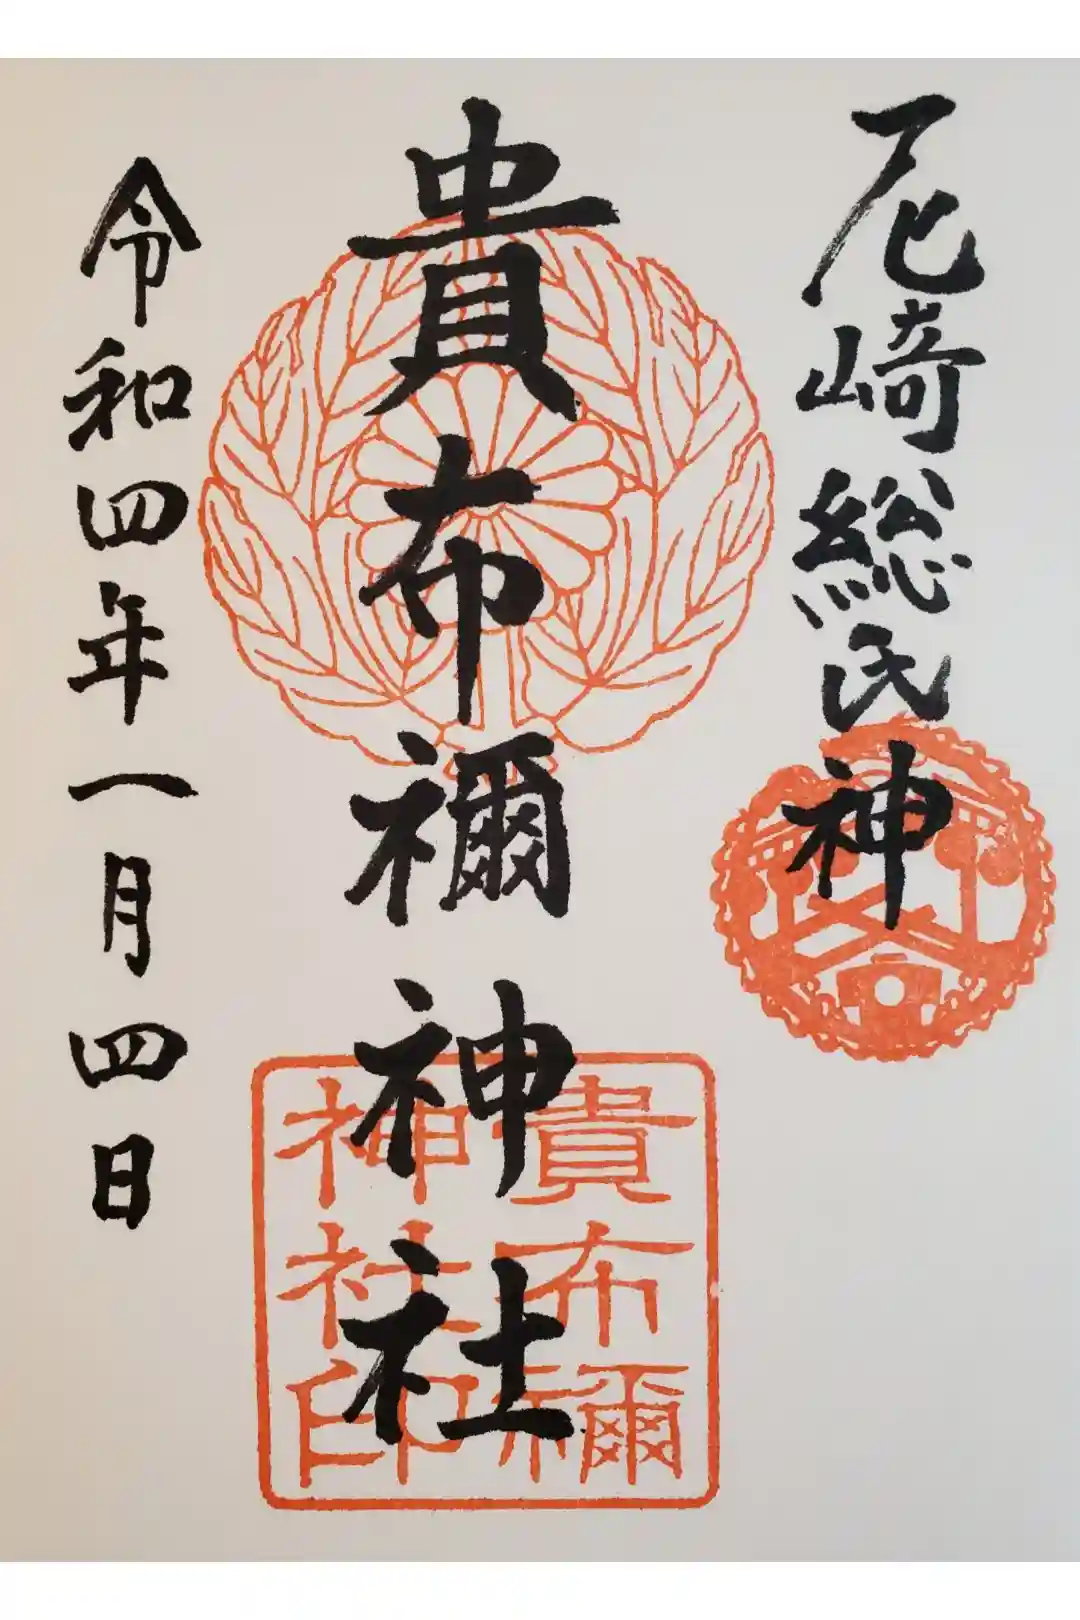 尼崎総氏神
貴布禰神社
貴布禰
神社印
令和四年一月四日